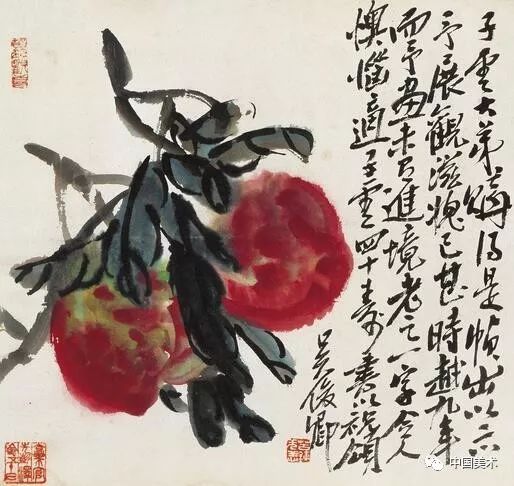 子雲大弟購得是幀出以示
予展觀滋愧已甚時越九年
而予畫未進境老一字令人
懊惱適子雲四十壽書以祝頌
吳俊卿
中国美术